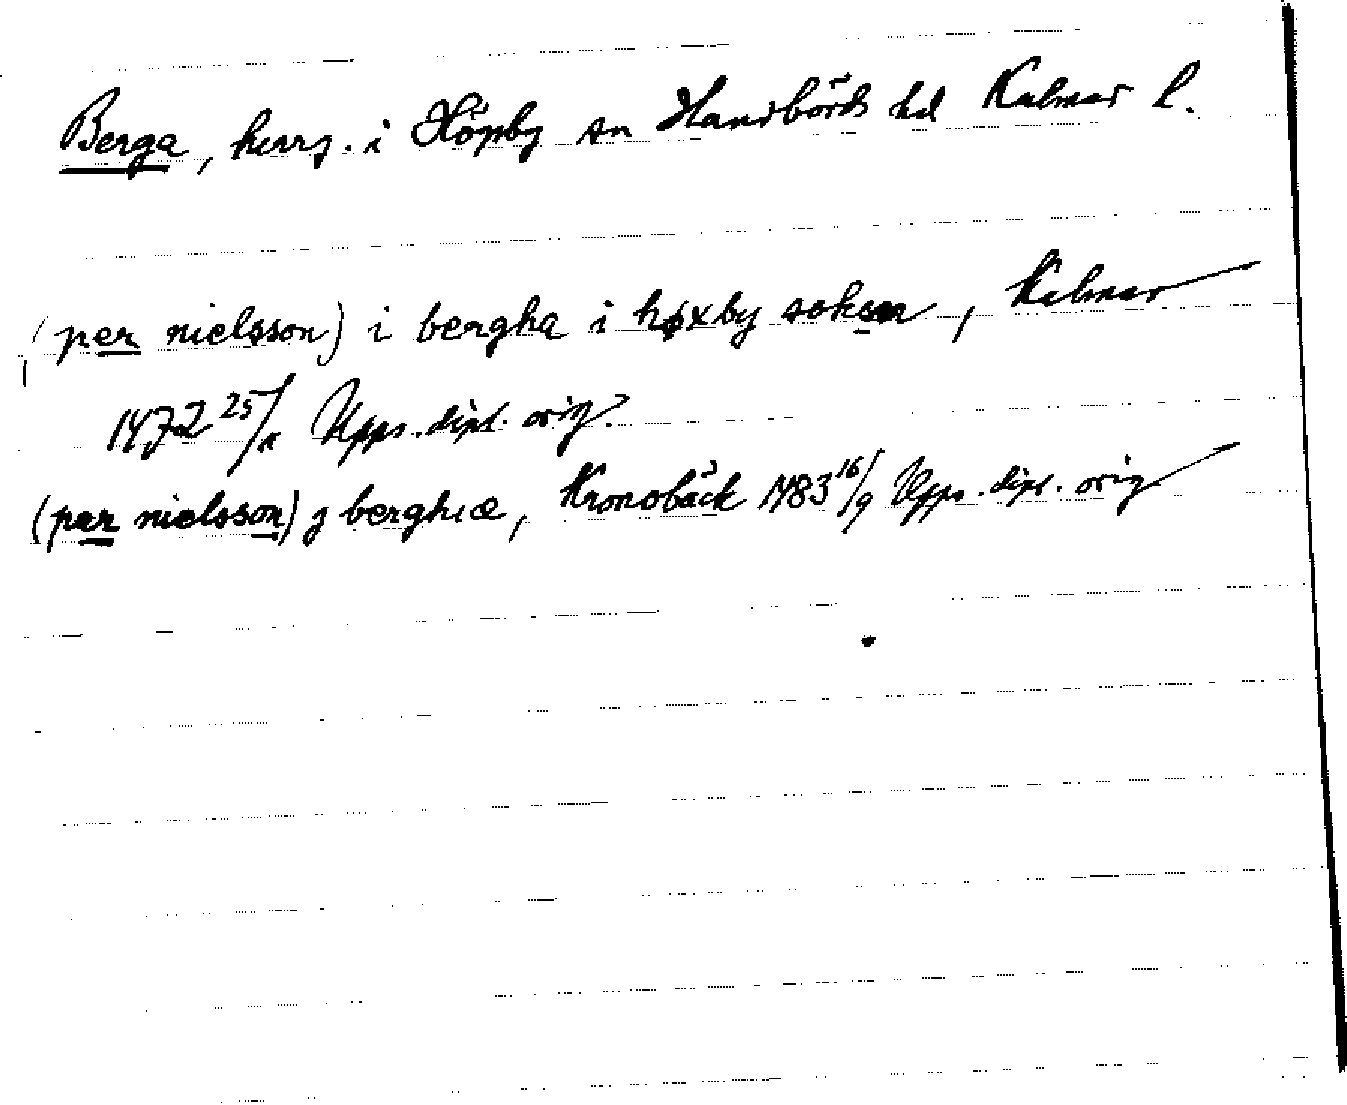 Berga, herrg. i Högsby sn Handbörds hd Kalmar l.
(per nielsson) i bergha i høxby soken, Kalmar
1472 25/x Upps. dipl. orig.
(per nielsson) j berghæ, Kronobäck 1483 16/9 Upps. dipl. orig